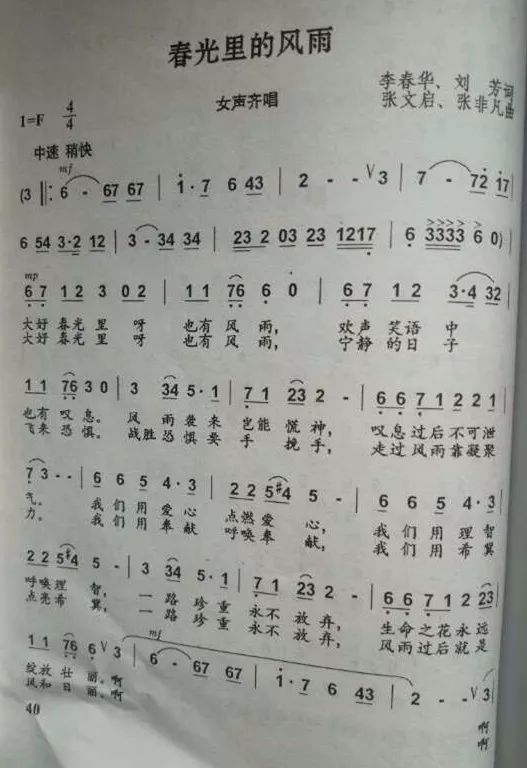 春光里的风雨
李春华、刘 芳词
女声齐唱
张文启、张非凡曲
1=F 4/4
中速 稍快
mf
(3 ‖: 6 - 67 67 | 1·7 6 43 | 2 - - V 3 | 7 - 72 17 |
6 54 3·2 12 | 3 - 34 34 | 23 2 03 23 1217 | 6 3333 6 0) |
mp
6 7 1 2 3 0 2 | 1 1 76 6 0 | 6 7 1 2 3·4 32 |
大好春光里 呀 也有 风 雨, 欢声 笑语 中
大好春光里 呀 也有 风 雨, 宁静 的日 子
1 1 76 3 0 | 3 34 5·1 | 7 1 23 2 - | 6 6 7 1 2 2 1 |
也有 叹息。 风 雨 袭来 岂能 慌 神, 叹息过后不可泄
飞来 恐惧。 战胜恐惧要 手 挽 手, 走过风雨靠凝聚
7 3 - - | 6 6 5 4·3 | 2 2 5#4 5 - | 6 6 5 4·3 |
气。 我们用 爱心 点燃 爱 心, 我们用 理智
力。 我们用 奉献 呼唤 奉 献, 我们用 希冀
2 2 5#4 5 - | 3 34 5·1 | 7 1 23 2 - | 6 6 7 1 2 23 |
呼唤理 智, 一 路 珍重 永不 放 弃, 生命之花永远
点亮希 冀, 一 路 珍重 永不 放 弃, 风雨过后就是
mf
1 1 76 6 V 3 | 6 - 67 67 | 1·7 6 43 | 2 - - V 3 |
绽放 壮 丽。啊 啊
风和 日 丽。啊 啊
40